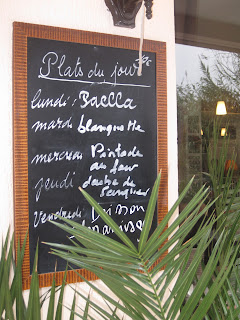 Plats du jour
lundi: Baclla
mardi blanquette
mercredi Pintade
au four
jeudi daube de
sanglier
Vendredi